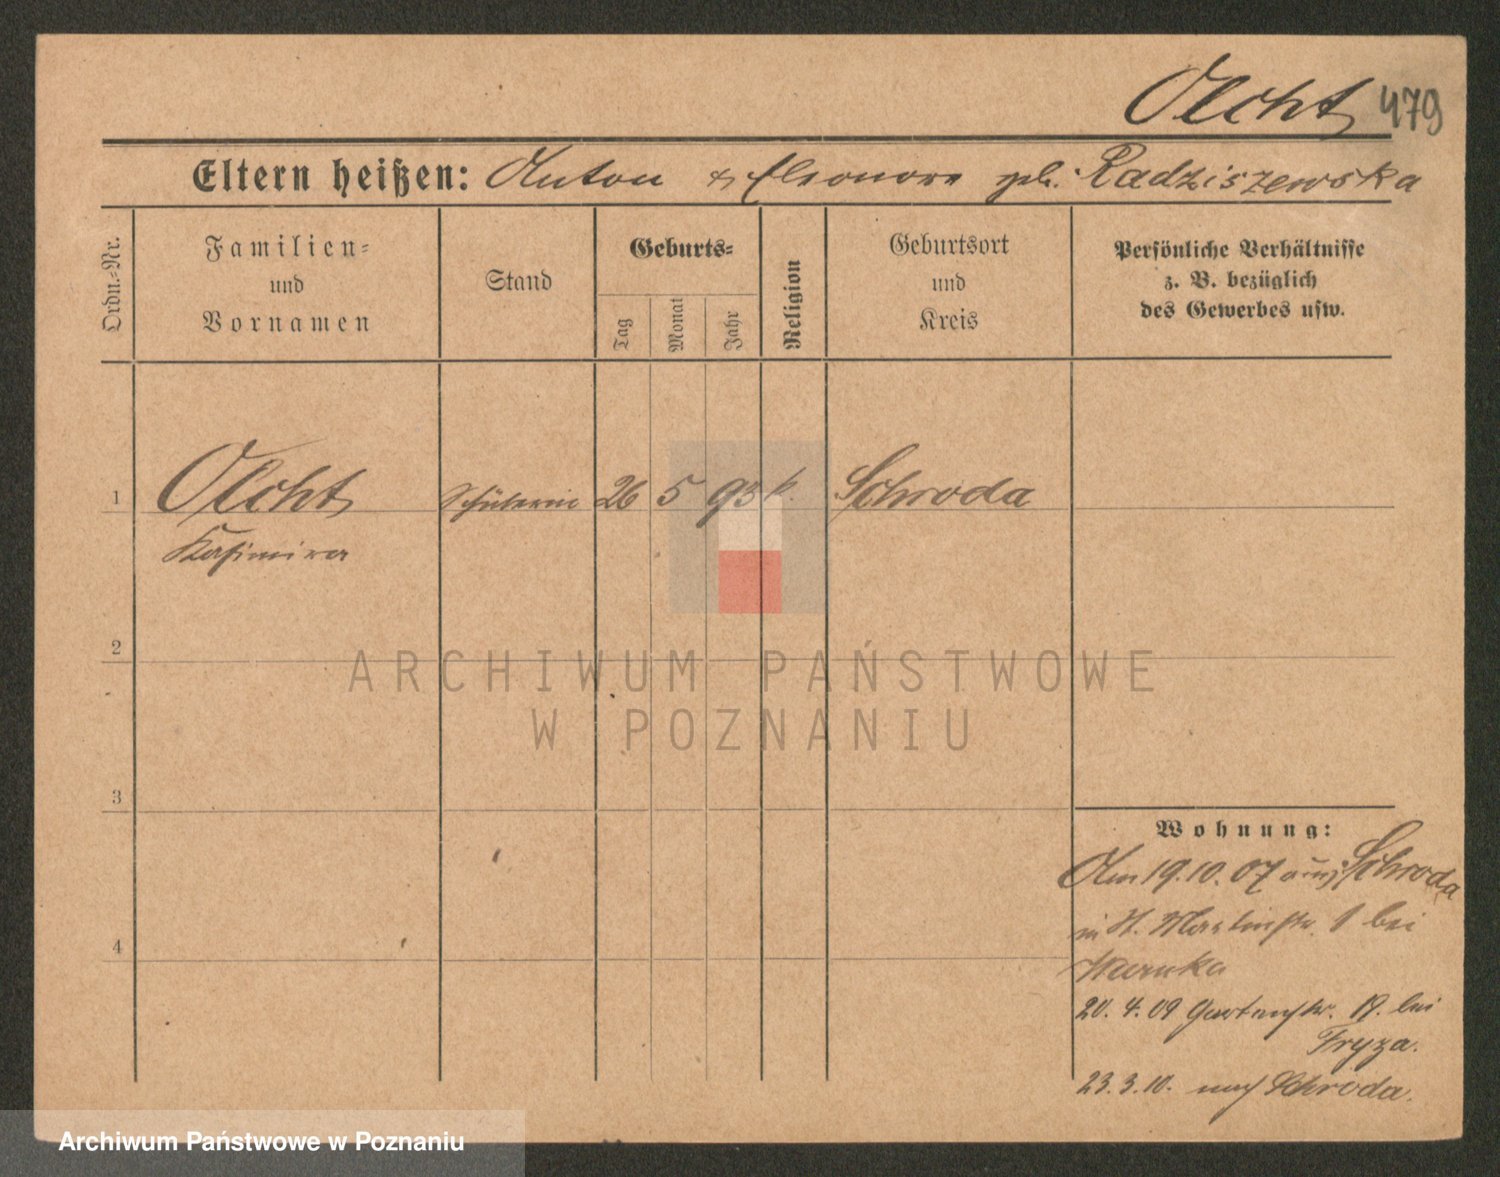 Olcht 479
Eltern heißen: Anton & Eleonore geb. Radziszewska
Ordn.-Nr.
Familien-
und
Vornamen
Stand
Geburts-
Tag
Monat
Jahr
Religion
Geburtsort
und
Kreis
Persönliche Verhältnisse
z. B. bezüglich
des Gewerbes usw.
1 Olcht Schülerin 26 5 93 k. Schroda
Kasimira
2
ARCHIWUM PAŃSTWOWE
W POZNANIU
3
Wohnung:
Am 19.10.07 aus Schroda
in St. Martinstr. 1 bei
4
20.4.09 Gartenstr. 19. bei
Fryza.
23.3.10. nach Schroda.
Archiwum Państwowe w Poznaniu